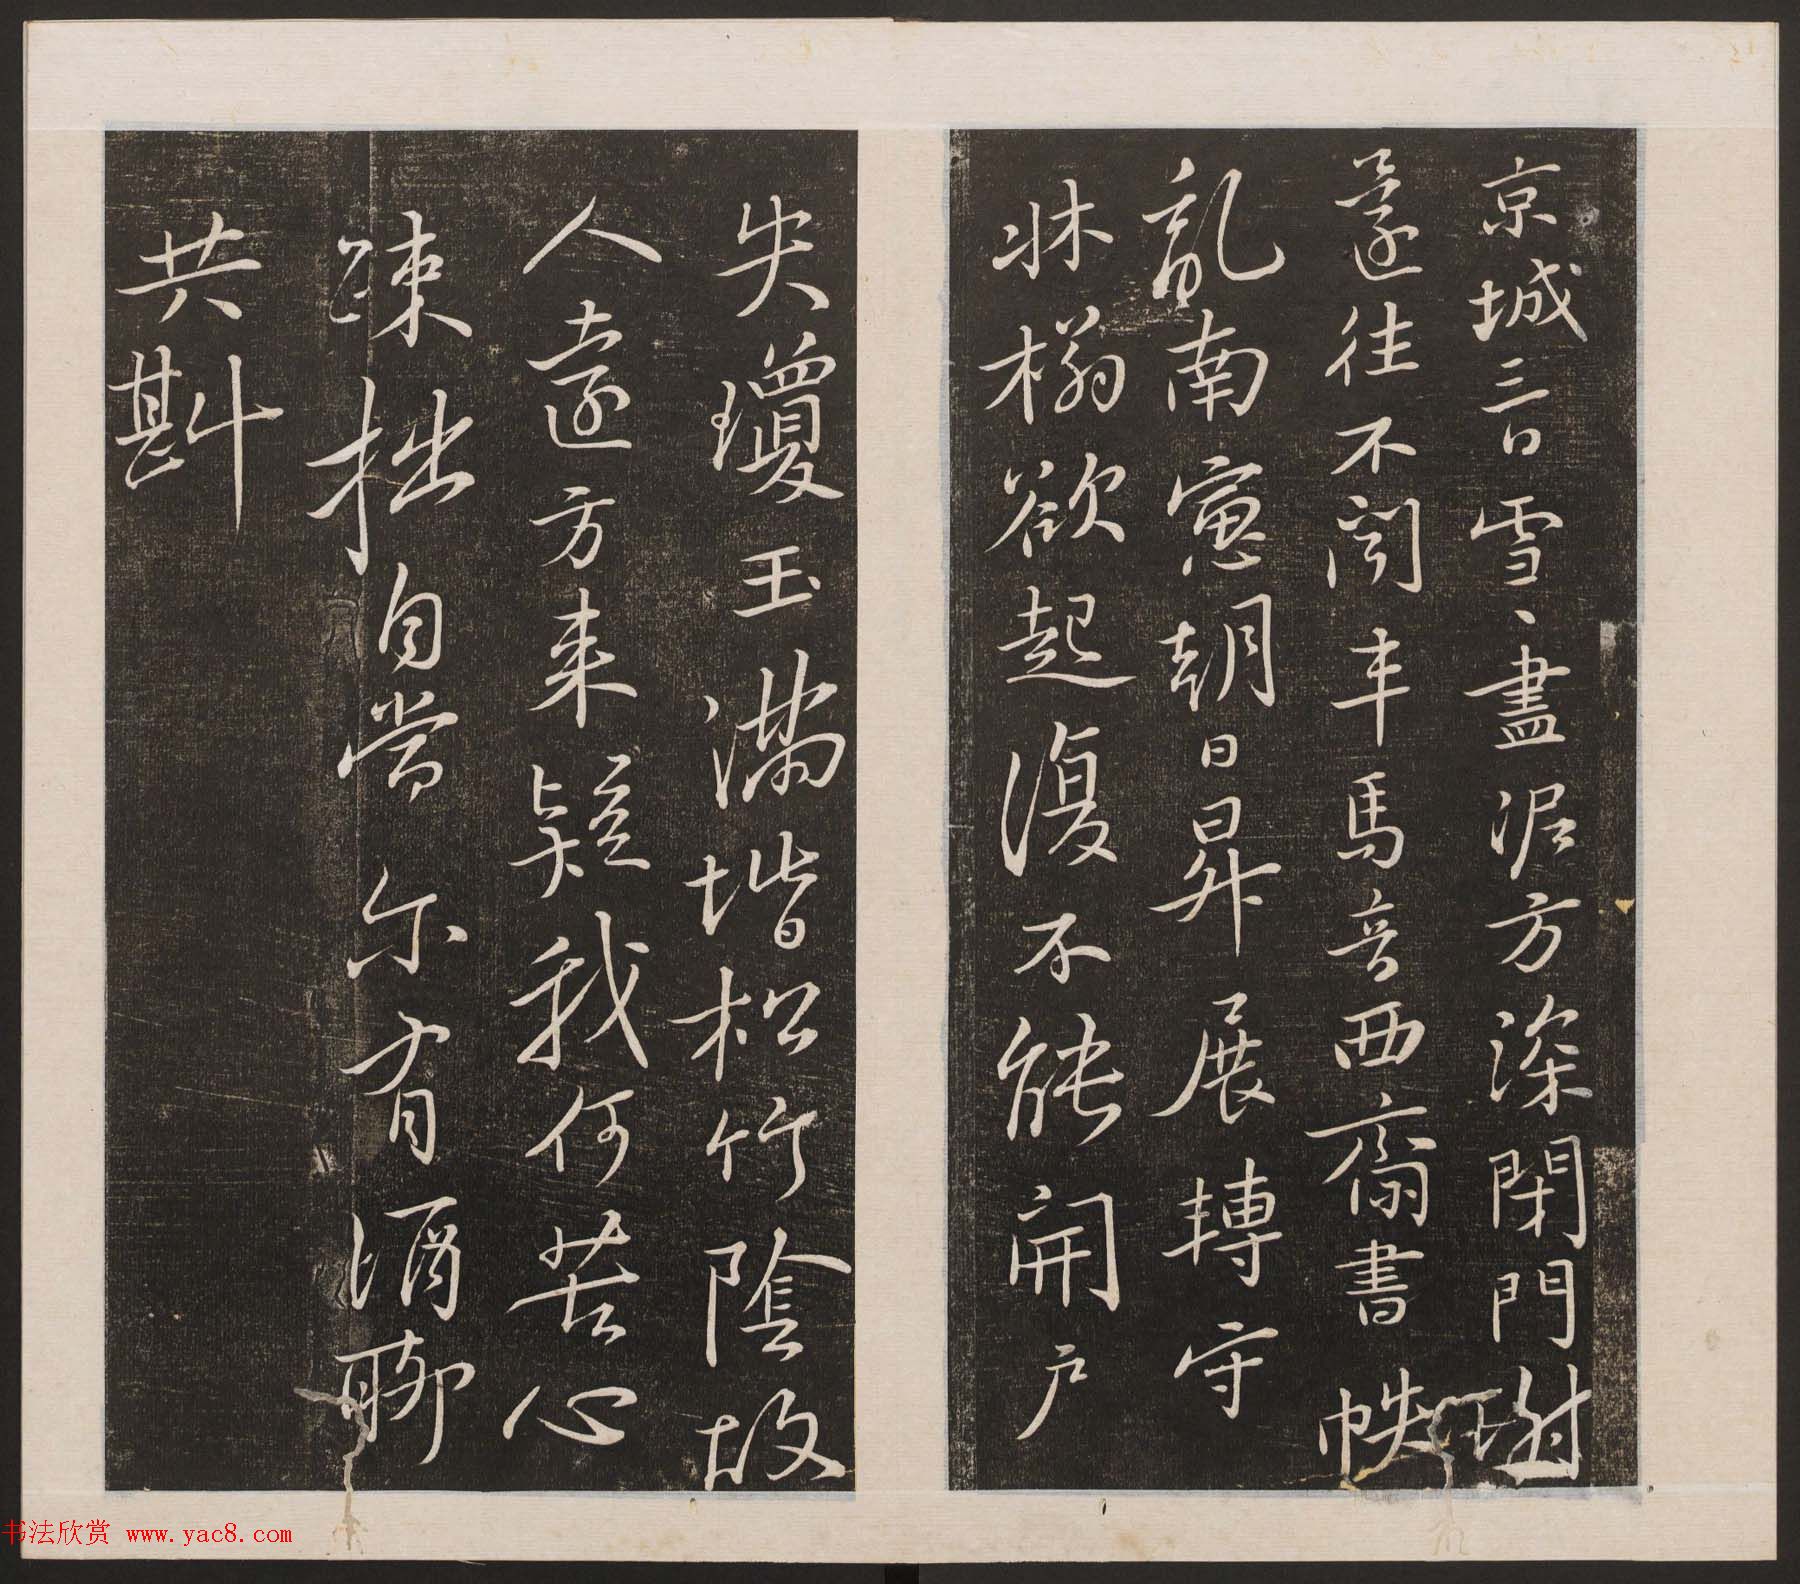 京城三日雪〻盡泥方深閉門謝
還往不聞車馬音西齋書帙
亂南窻朝日昇展轉守
牀榻欲起復不能開戶
失瓊玉滿堦松竹陰故
人遠方来疑我何苦心
踈拙自當尔有酒聊
共斟
书法欣赏 www.yac8.com